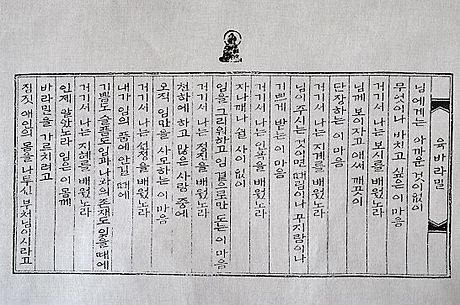 육바라밀
님에게는 아까운 것이 없이
무엇이나 바치고 싶은 이 마음
거기서 나는 보시를 배웠노라
님께 보이자고 애써 깨끗이
단장하는 이 마음
거기서 나는 지계를 배웠노라
님이 주시는 것이면 때림이나 꾸지람이나
기쁘게 받는 이 마음
거기서 나는 인욕을 배웠노라
자나깨나 쉴 사이 없이
임을 그리워하고 임 곁으로만 도는 이 마음
거기서 나는 정진을 배웠노라
천하에 하고 많은 사람 중에
오직 임만을 사모하는 이 마음
거기서 나는 선정을 배웠노라
내가 임의 품에 안길 때에
기쁨도 슬픔도 임과 나와의 존재도 잊을 때에
거기서 나는 지혜를 배웠노라
인제 알았노라 임은 이 몸께
바라밀을 가르치려고
짐짓 애인의 몸을 나투신 부처님이시라고